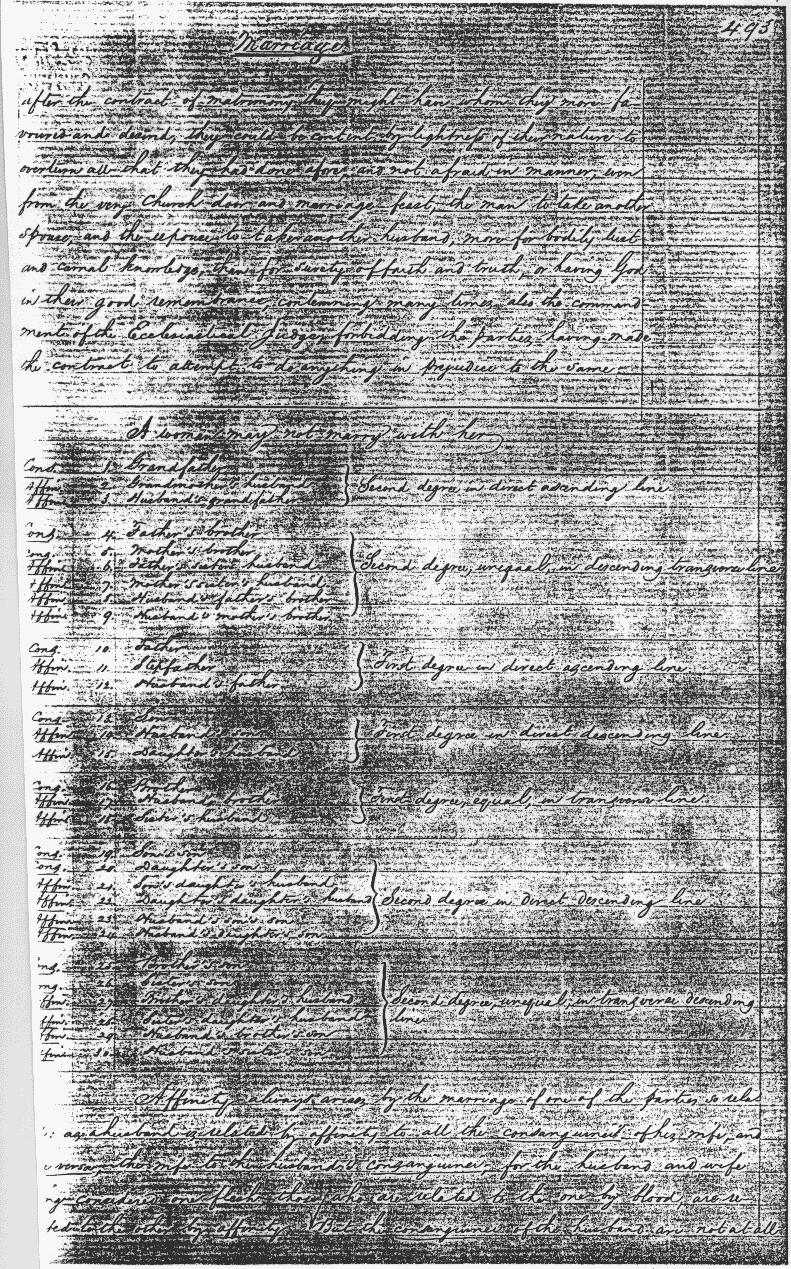 495
Marriage
after the contract of matrimony they might have whom they more fa-
voured and desired, they could be content by lightness of their nature to
overturn all that they had done afore, and not afraid in manner, even
from the very Church door and marriage feast, the man to take another
spouse, and the espouse to take another husband, more for bodily lust
and carnal knowledge, then for surety of faith and truth, or having God
in their good remembrance, contemning many times also the command-
ment of the Ecclesiastical Judge, forbidding the parties having made
the contract to attempt to do anything in prejudice to the same.
A woman may not marry with her
Cons. 1. Grandfather
Affin. 2. Grandmother's husband
Affin. 3. Husband's grandfather
Second degree in direct ascending line
Cong. 4. Father's brother
Cong. 5. Mother's brother
Affin. 6. Father's sister's husband
Affin. 7. Mother's sister's husband
Affin. 8. Husband's father's brother
Affin. 9. Husband's mother's brother
Second degree, unequal, in descending transverse line
Cong. 10. Father
Affin. 11. Stepfather
Affin. 12. Husband's father
First degree in direct ascending line
Cong. 13. Son
Affin. 14. Husband's son
Affin. 15. Daughter's husband
First degree in direct descending line.
Cong. 16. Brother
Affin. 17. Husband's brother
Affin. 18. Sister's husband
First degree, equal, in transverse line.
Cong. 19. Son's son
Cong. 20. Daughter's son
Affin. 21. Son's daughter's husband
Affin. 22. Daughter's daughter's husband
Affin. 23. Husband's son's son
Affin. 24. Husband's daughter's son
Second degree in direct descending line
ng. 25. Brother's son
ng. 26. Sister's son
Affin. 27. Brother's daughter's husband
ffin. 28. Sister's daughter's husband
ffin. 29. Husband's brother's son
ffin. 30. Husband's sister's son
Second degree, unequal, in transverse descending
line.
Affinity always arises by the marriage of one of the parties so rela-
: as a husband is related by affinity to all the consanguinei of his wife, and
versa, the wife to the husband's consanguinei, for the husband and wife
ng considered one flesh, those who are related to the one by blood, are re-
the other by affinity. But the consanguinei of the husband are not at all